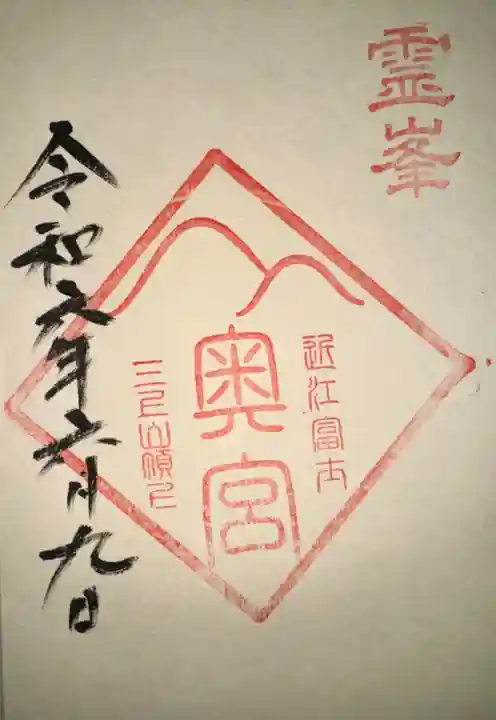 霊峯
近江富士
奥宮
三上山頂上
令和六年六月九日